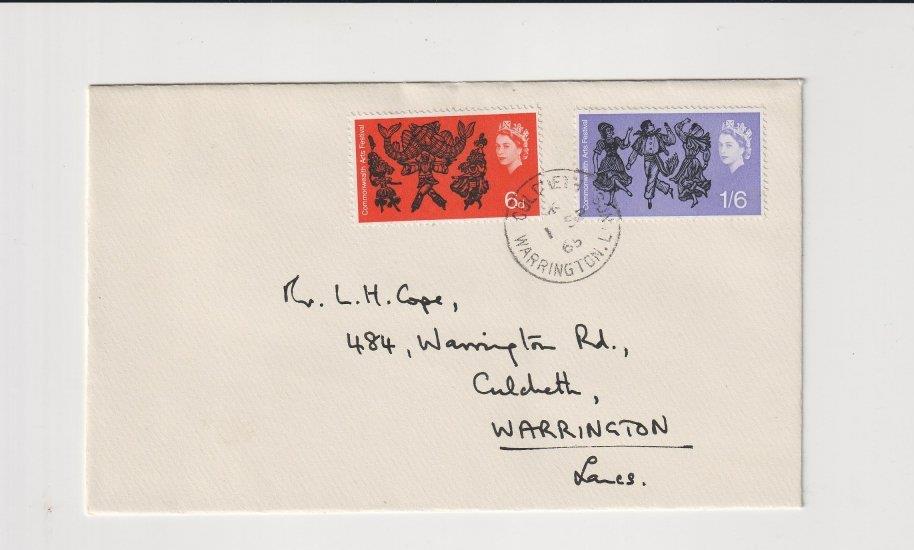 Commonwealth Arts Festival
6d
Commonwealth Arts Festival
1/6
WARRINGTON. L
65
Mr. L.H. Cope,
484, Warrington Rd.,
Culcheth,
WARRINGTON
Lancs.